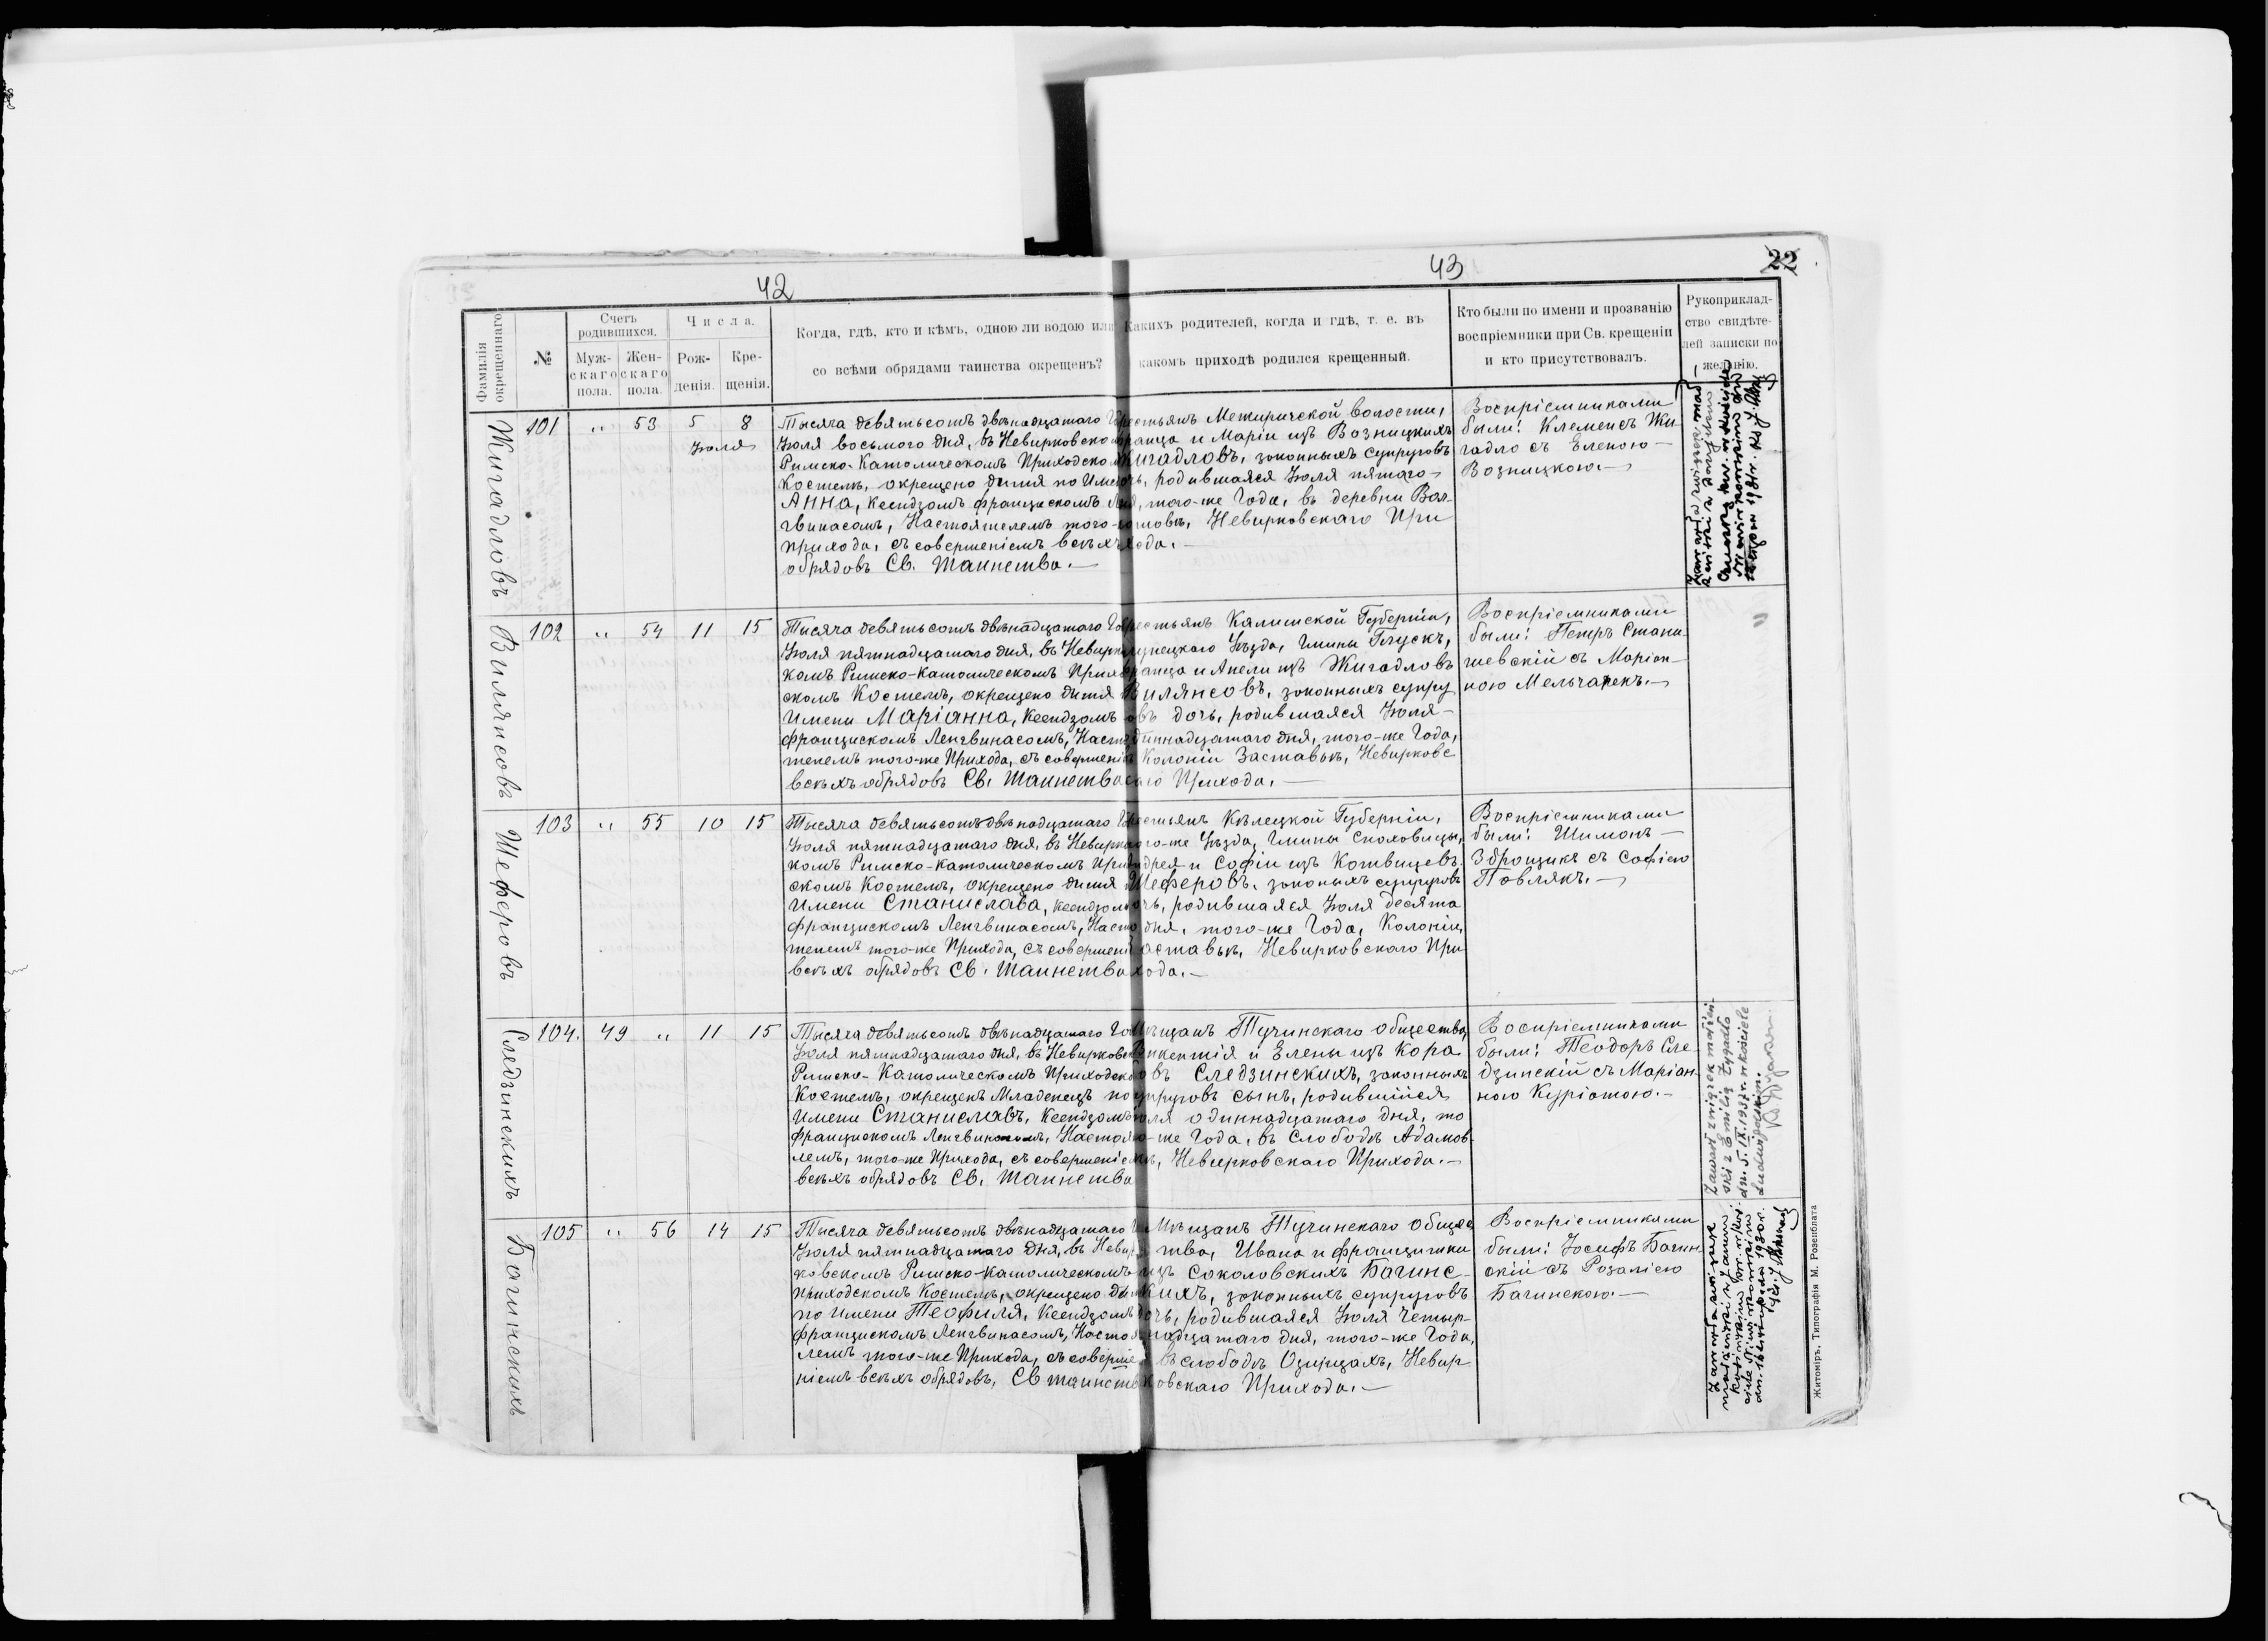 42
43
22
Фамилія окрещеннаго
№
Счетъ родившихся.
Муж-скаго пола.
Жен-скаго пола.
Числа.
Рож-денія.
Кре-щенія.
Когда, гдѣ, кто и кѣмъ, одною ли водою или
со всѣми обрядами таинства окрещенъ?
Какихъ родителей, когда и гдѣ, т. е. въ
какомъ приходѣ родился крещенный.
Кто были по имени и прозванію
воспріемники при Св. крещеніи
и кто присутствовалъ.
Рукоприклад-
ство свидѣте-
лей записки по
желанію.
Жигадловъ
101 " 53 5 8
Іюля
Тысяча девятьсотъ двѣнадцатаго
Іюля восьмого дня, въ Невирковско
Римско-Католическомъ Приходско
Костелѣ, окрещено дитя по Имени
Анна, Ксендзомъ Францискомъ
гвинасомъ, Настоятелемъ того-
прихода, съ совершеніемъ всѣхъ
обрядовъ Св. Таинства.—
рестьянъ Межиричской волости,
ранца и Маріи изъ Возницкихъ
Жигадловъ, законныхъ супруговъ
родившаяся Іюля пятаго
того-же Года, въ деревни Вол-
Невирковскаго При
хода.—
Воспріемниками
были: Клеменсъ Жи
гадло съ Еленою
Возницкою.—
Вилянсовъ
102 " 54 11 15
Тысяча девятьсотъ двѣнадцатаго
Іюля пятнадцатаго дня, въ Невирк
комъ Римско-Католическомъ Прихо
скомъ Костелѣ, окрещено дитя
Имени Маріанна, Ксендзомъ
Францискомъ Ленгвинасомъ, Насто
телемъ того-же Прихода, съ совершені
всѣхъ обрядовъ Св. Таинства
рестьянъ Калишской Губерніи,
Уѣзда, Гмины Глускъ,
ранца и Анели изъ Жигадловъ
Вилянсовъ, законныхъ супру
овъ дочь, родившаяся Іюля
диннадцатаго дня, того-же Года,
Колоніи Заставѣ, Невирковс
каго Прихода.—
Воспріемниками
были: Петръ Стани
шевскій съ Маріан-
ною Мельчарекъ.—
Шеферовъ
103 " 55 10 15
Тысяча девятьсотъ двѣнадцатаго
Іюля пятнадцатаго дня, въ Невирко
комъ Римско-Католическомъ При
скомъ Костелѣ, окрещено дитя
Имени Станислава, Ксендзом
Францискомъ Ленгвинасомъ, Насто
телемъ того-же Прихода, съ совершені
всѣхъ обрядовъ Св. Таинства
рестьянъ Кѣлецкой Губерніи,
го-же Уѣзда, Гмины
ндрея и Софіи изъ Котвицевъ
Шеферовъ, законыхъ супруговъ
родившаяся Іюля десята
дня, того-же Года, Колоніи
аставѣ, Невирковскаго При
хода.—
Воспріемниками
были: Шимонъ
Зброщикъ съ Софіею
Павлякъ.—
Следзинскихъ
104. 49 " 11 15
Тысяча девятьсотъ двѣнадцатаго Го
Іюля пятнадцатаго дня, въ Невирковс
Римско-Католическомъ Приходско
Костелѣ, окрещенъ Младенецъ по
Имени Станиславъ, Ксендзомъ
Францискомъ Ленгвинасомъ, Настоя
лемъ, того-же Прихода, съ совершеніе
всѣхъ обрядовъ Св. Таинства
Мѣщанъ Тучинскаго общества,
Викентія и Елены изъ Кора
овъ Следзинскихъ, законныхъ
упруговъ сынъ, родившійся
юля одиннадцатаго дня, то
го-же Года, въ Слободѣ Адамов-
кѣ, Невирковскаго Прихода.—
Воспріемниками
были: Теодоръ Сле
дзинскій съ Маріан-
ною Куріатою.—
Zawarł związek małżeń-
ski z Emilią Żygadło
dn. 5. IX. 1937 r. w kościele
Багинскихъ
105 " 56 14 15
Тысяча девятьсотъ двѣнадцатаго
Іюля пятнадцатаго дня, въ Невир
ковскомъ Римско-Католическомъ
Приходскомъ Костелѣ, окрещено ди
по имени Теофиля, Ксендзомъ
Францискомъ Ленгвинасомъ, Настоя
лемъ того-же Прихода, съ соверше
ніемъ всѣхъ обрядовъ, Св Таинств
Мѣщанъ Тучинскаго общес
тва, Ивана и Францишки
изъ Соколовскихъ Багинс-
кихъ, законныхъ супруговъ
дочь, родившаяся Іюля Четыр-
надцатаго дня, того-же Года,
въ слободѣ Озирцахъ, Невир
ковскаго Прихода.—
Воспріемниками
были: Іосифъ Багин
скій съ Розаліею
Багинскою.—
Житоміръ, Типографія М. Розенблата